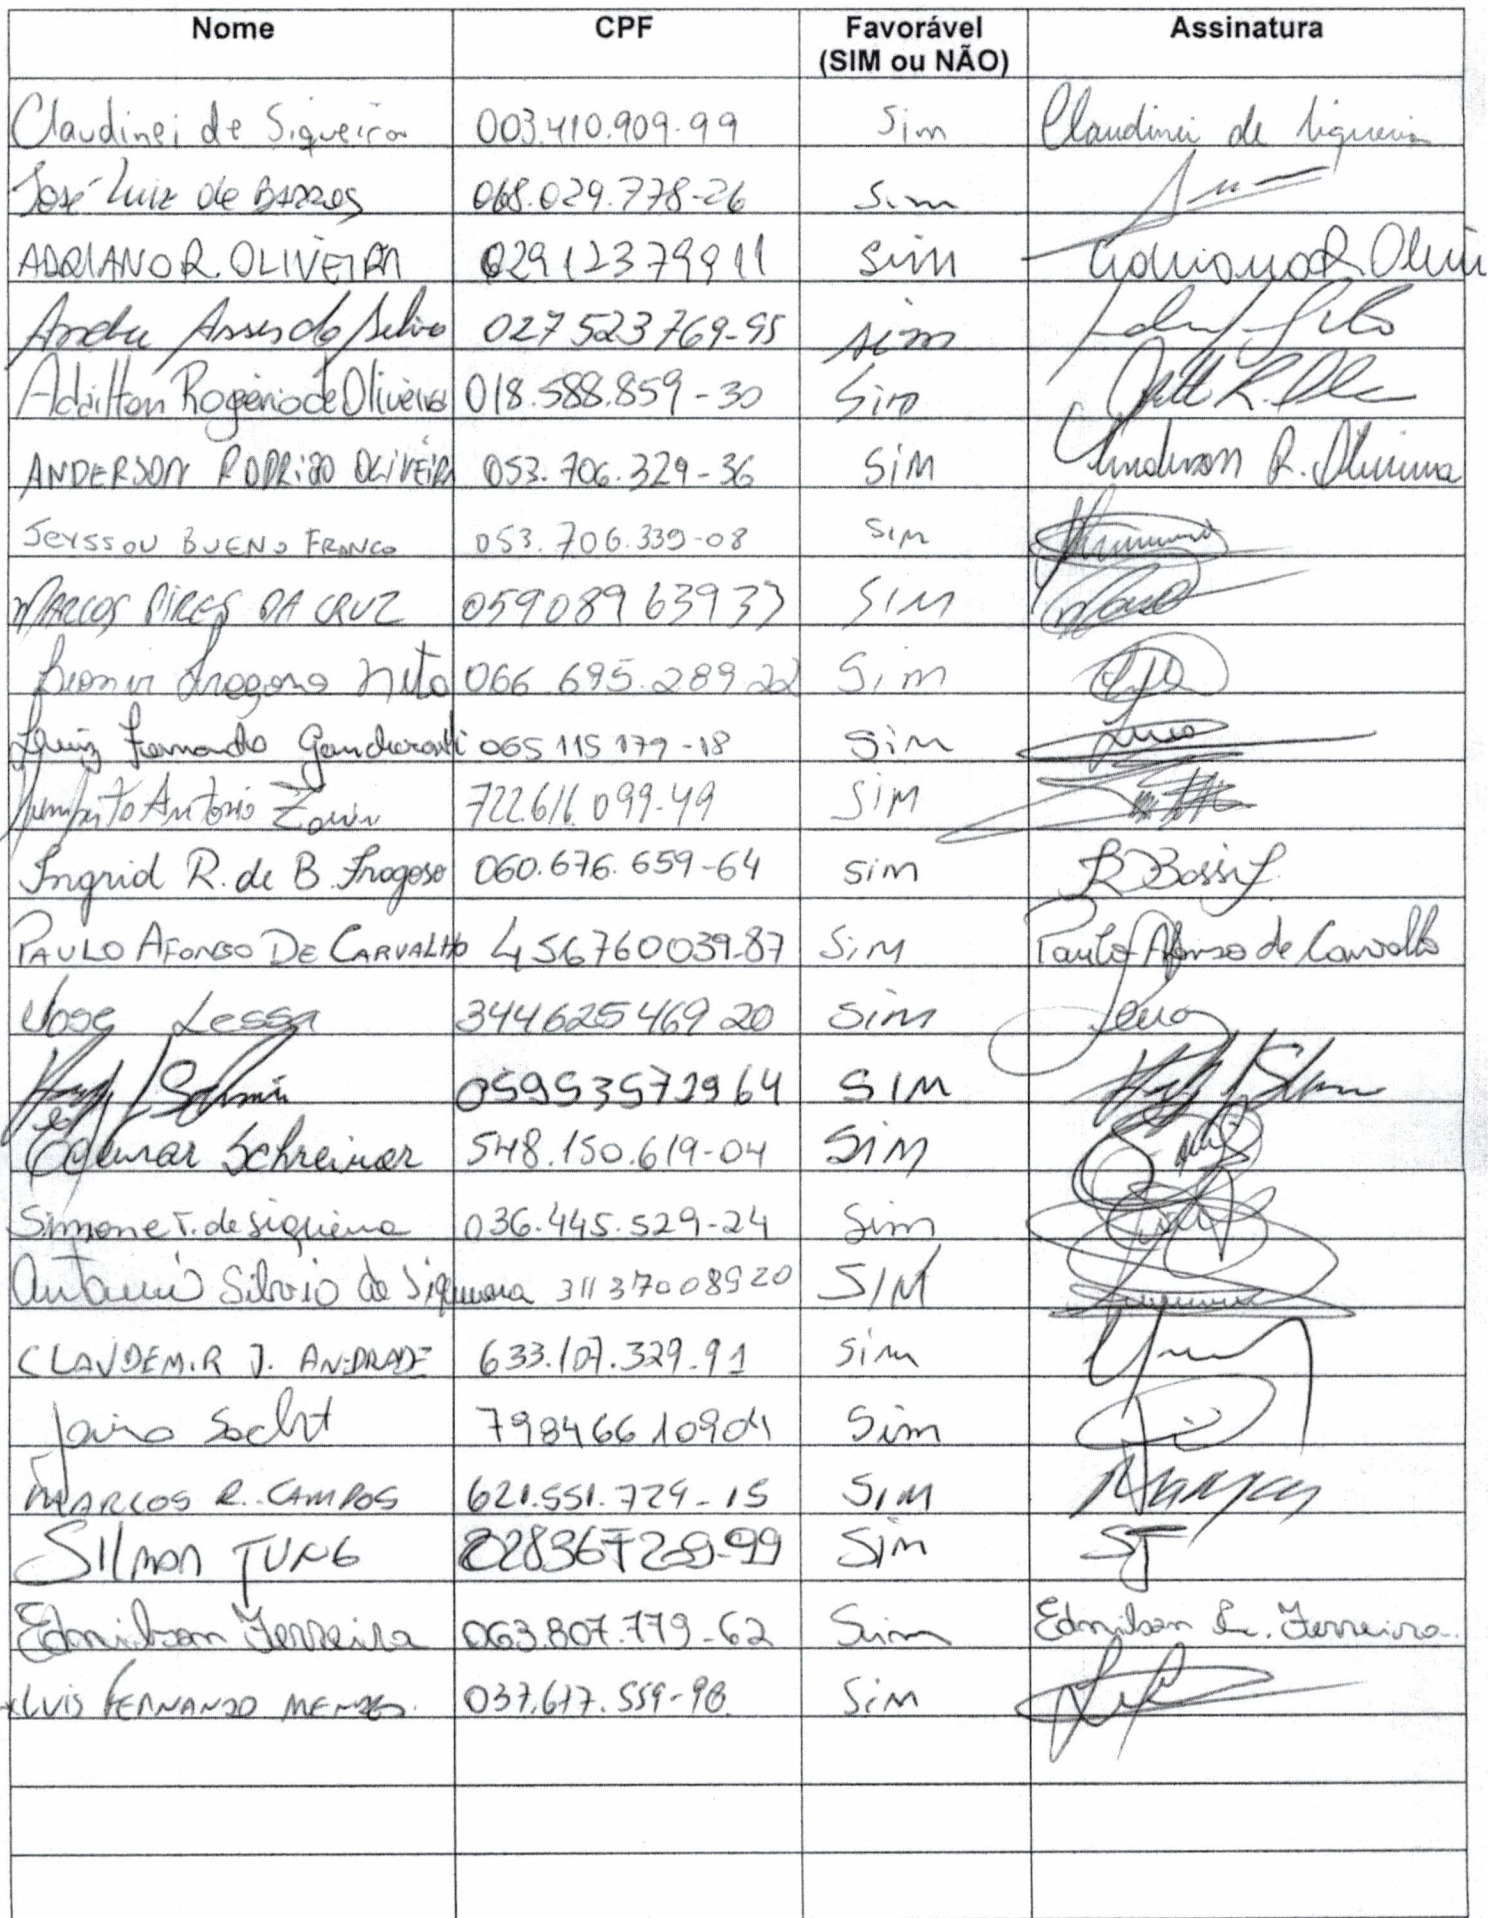 Nome CPF Favorável (SIM ou NÃO) Assinatura
Claudinei de Siqueira 003.410.909-99 Sim Claudinei de Siqueira
José Luiz de BARROS 068.029.778-26 Sim
ADRIANO R. OLIVEIRA 02912379911 Sim Adriano R Olivei
Andre Assis da Silva 027523769-95 sim
Adailton Rogério de Oliveira 018.588.859-30 Sim
ANDERSON RODRIGO OLIVEIRA 053.706.329-36 SiM Anderson R. Oliveira
Jeysson BUENO FRANCO 053.706.339-08 SIM
MARCOS PIRES DA CRUZ 05908963933 SIM
Fragoso Neto 066.695.289.22 Sim
Luiz Fernando 065 115 179-18 Sim
Antonio 722.616.099-49 SIM
Ingrid R. de B. Fragoso 060.676.659-64 Sim
PAULO AFONSO DE CARVALHO 456760039-87 SiM Paulo Afonso de Carvalho
Jose Lessa 34462546920 Sim
SIM
Schreiner 548.150.619-04 SIM
Simone T. de Siqueira 036.445.529-24 Sim
Antonio Silvio de Siqueira 31137008920 SIM
CLAUDEMIR J. ANDRADE 633.107.329-91 Sim
Jairo Socht 79846610904 Sim
MARCOS R. CAMPOS 621.551.729-15 SIM
SIlmon JUNG 028367289-99 SIM SJ
Ednilson Ferreira 063.807.779-62 Sim Ednilson L. Ferreira
LUIS FERNANDO MENDES. 037.617.559-98 Sim